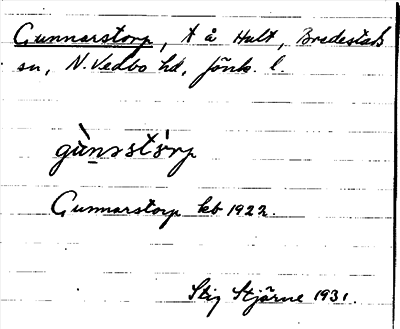 Gunnarstorp, t å Hult, Bredestads
sn, N. Vedbo hd, Jönk. l.
gùnɔstòrp
Gunnarstorp kb 1922.
Stig Stjärne 1931.